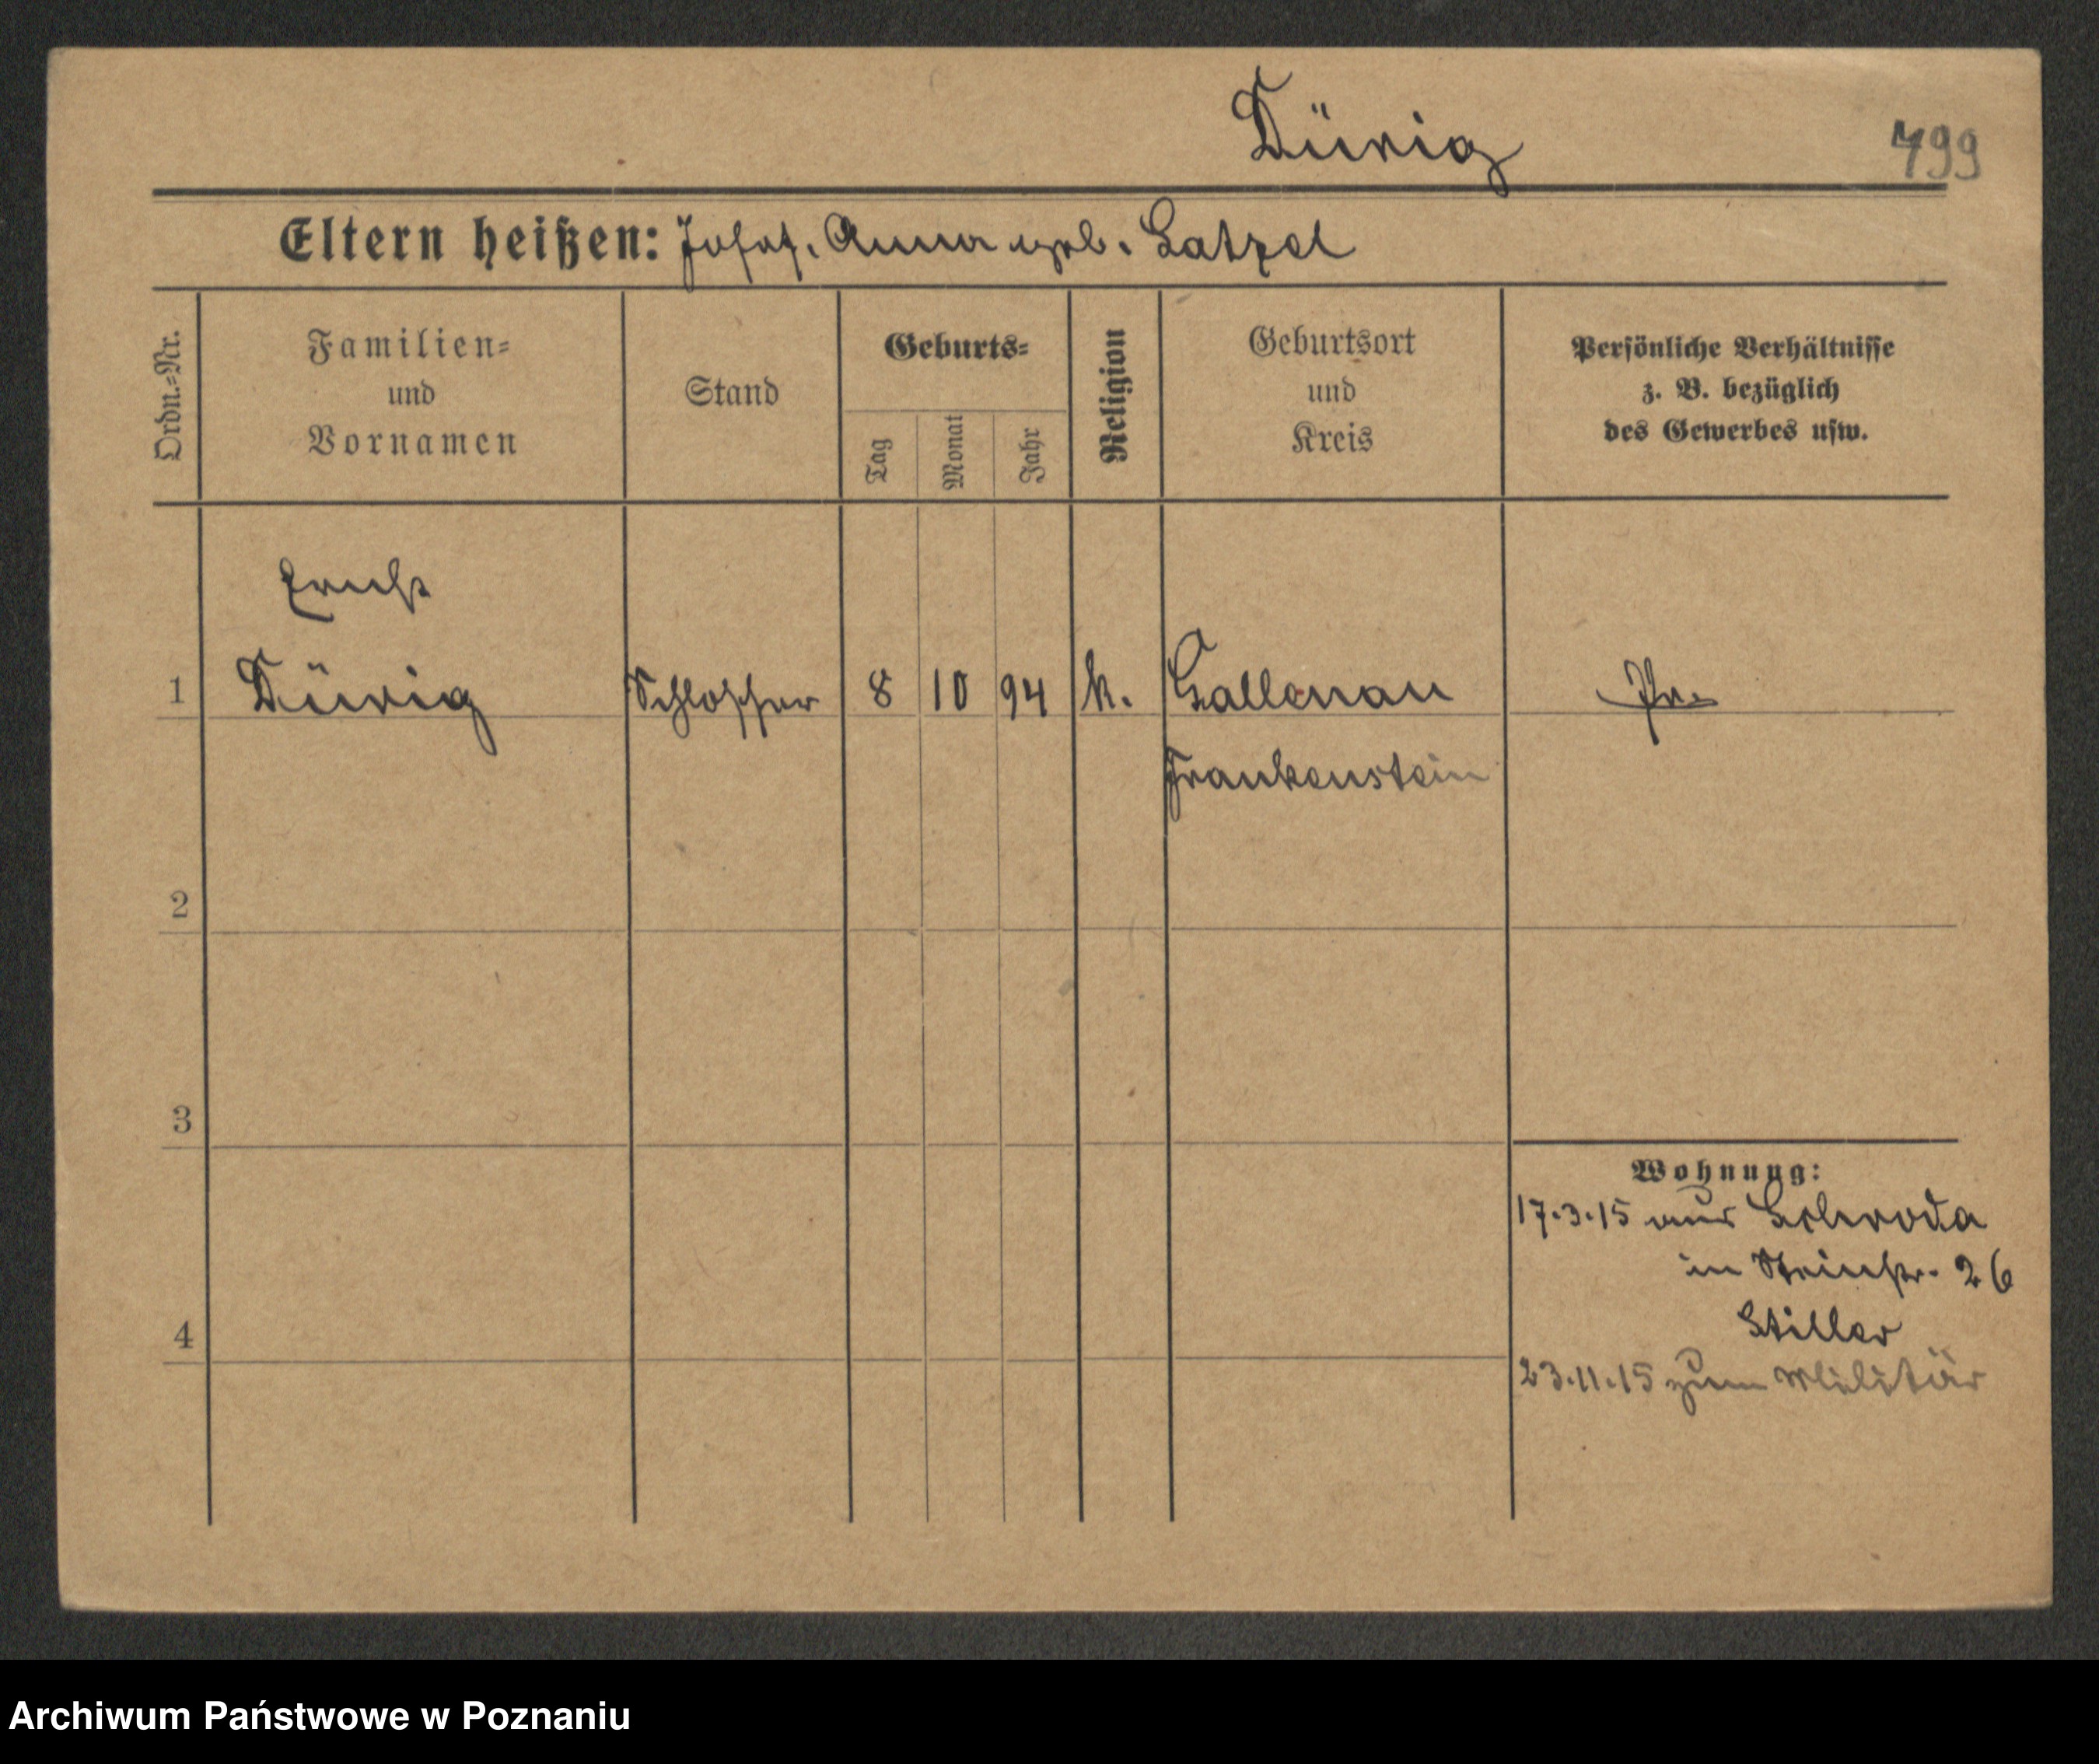 Dürig
499
Eltern heißen: Josef. Anna geb. Latzel
Ordn.-Nr.
Familien-
und
Vornamen
Stand
Geburts-
Tag
Monat
Jahr
Religion
Geburtsort
und
Kreis
Persönliche Verhältnisse
z. B. bezüglich
des Gewerbes usw.
Erich
1 Dürig Schlosser 8 10 94 k. Gallenau Pr.
Frankenstein
2
3
Wohnung:
17.3.15 aus Schroda
in Steinstr. 26
Stiller
4
23.11.15 zum Militär
Archiwum Państwowe w Poznaniu